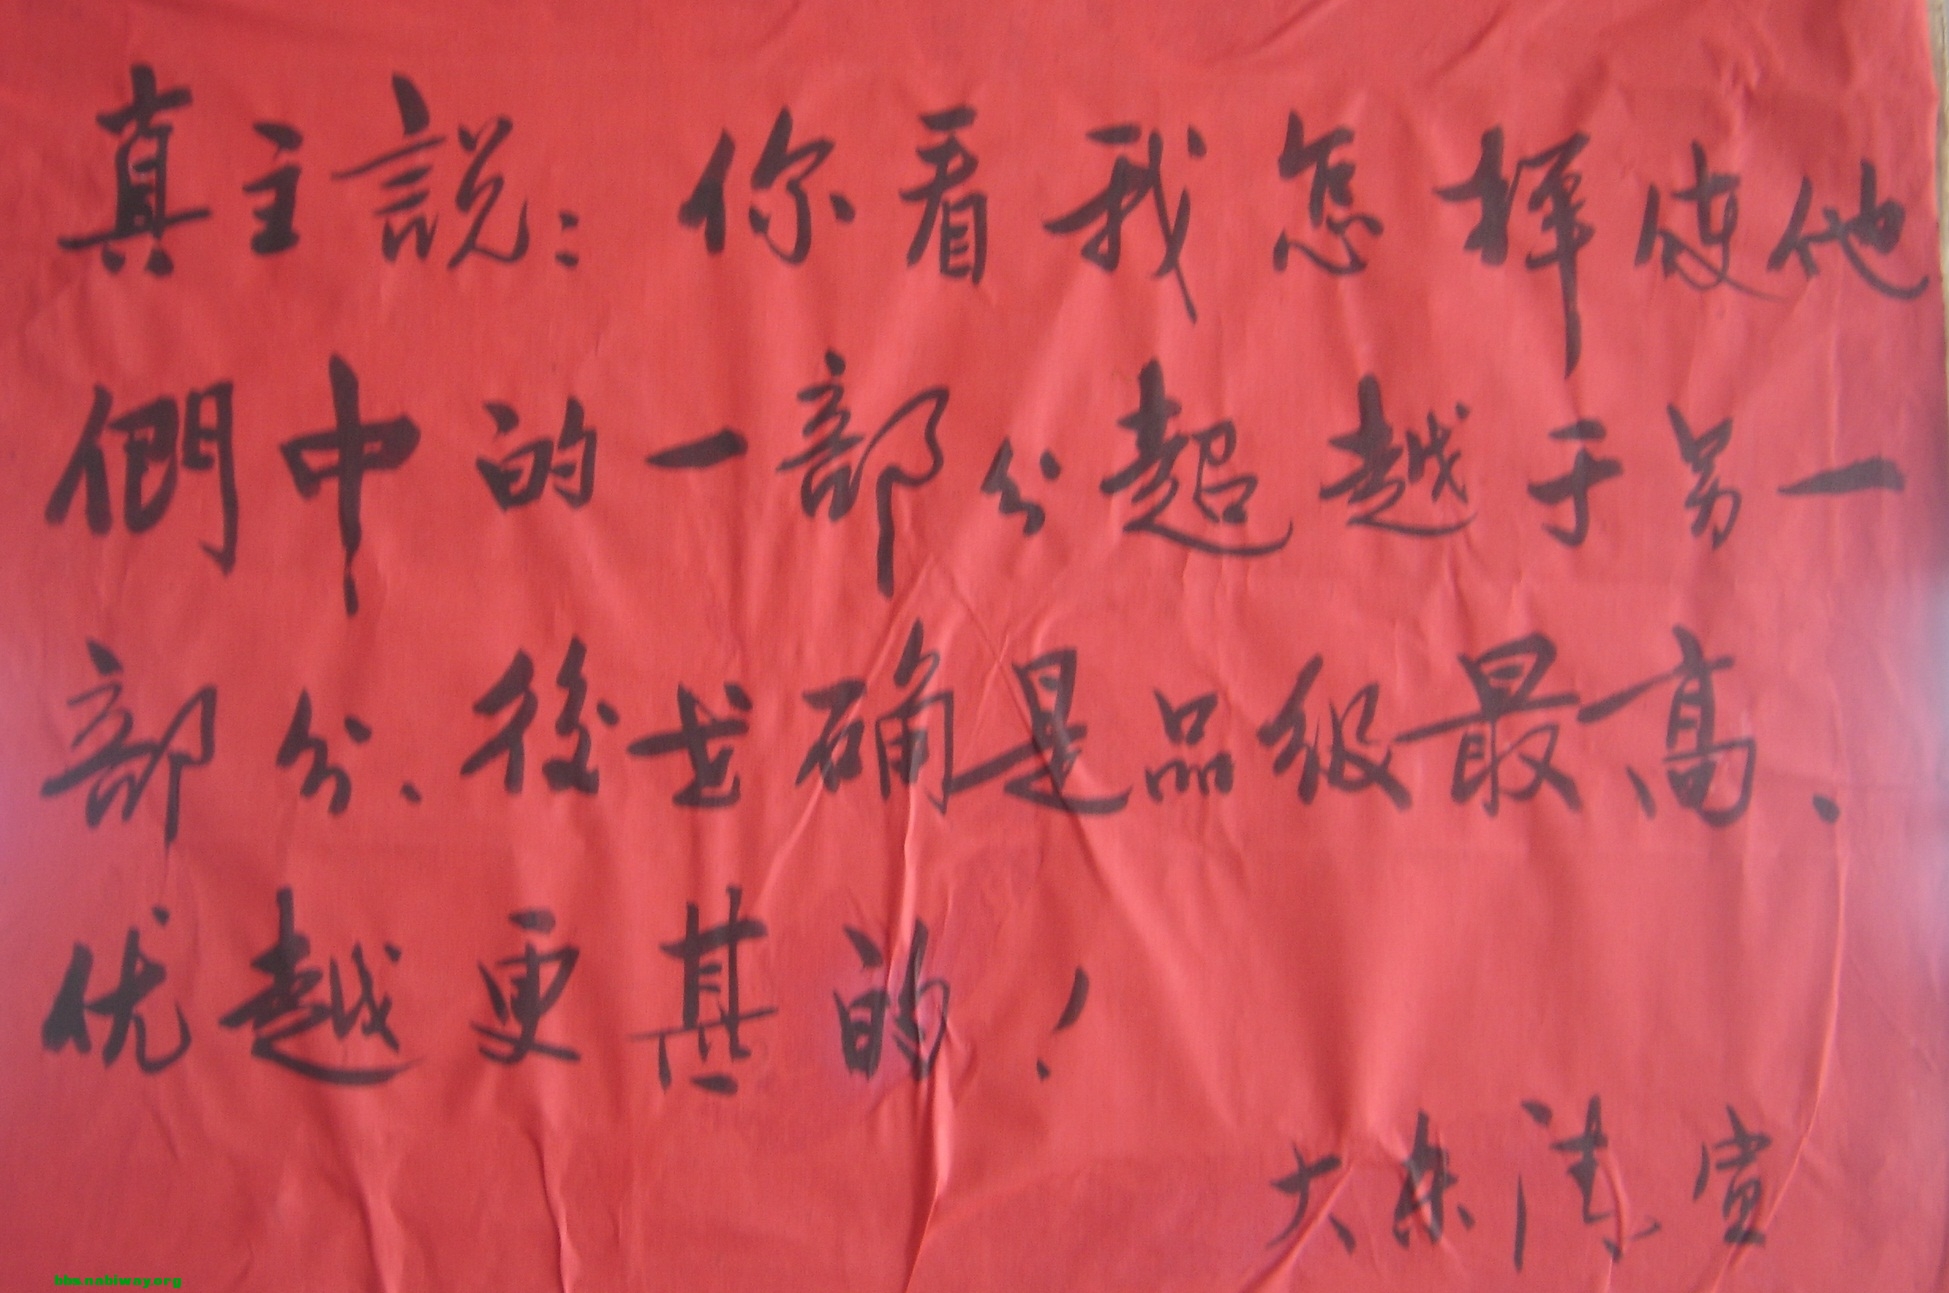 真主説：你看我怎樣使他
們中的一部分超越于另一
部分、後世确是品级最高、
优越更甚的！
大东清